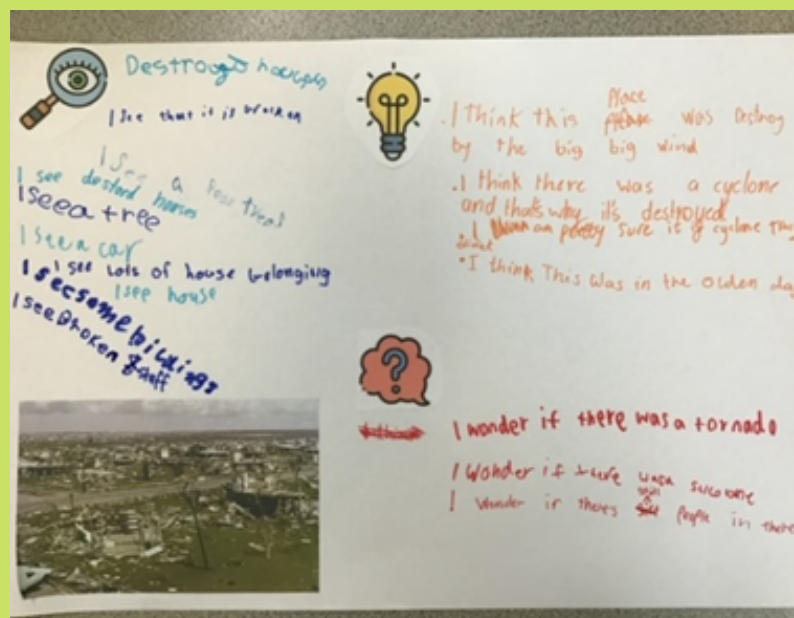 I see that it is broken
I see a
I see destord houses
I see a tree
I see a car
I see lots of house belonging
I see house
I see some
I see Broken stuff
.I Think this Place was Destroy
by the big big wind
.I think there was a cyclone
and that's why it's destroyed
. I am pretty sure it is cyclone
•I think This was in the olden da
I wonder if there was a tornado
I wonder if there was a
I wonder if theres still people in there